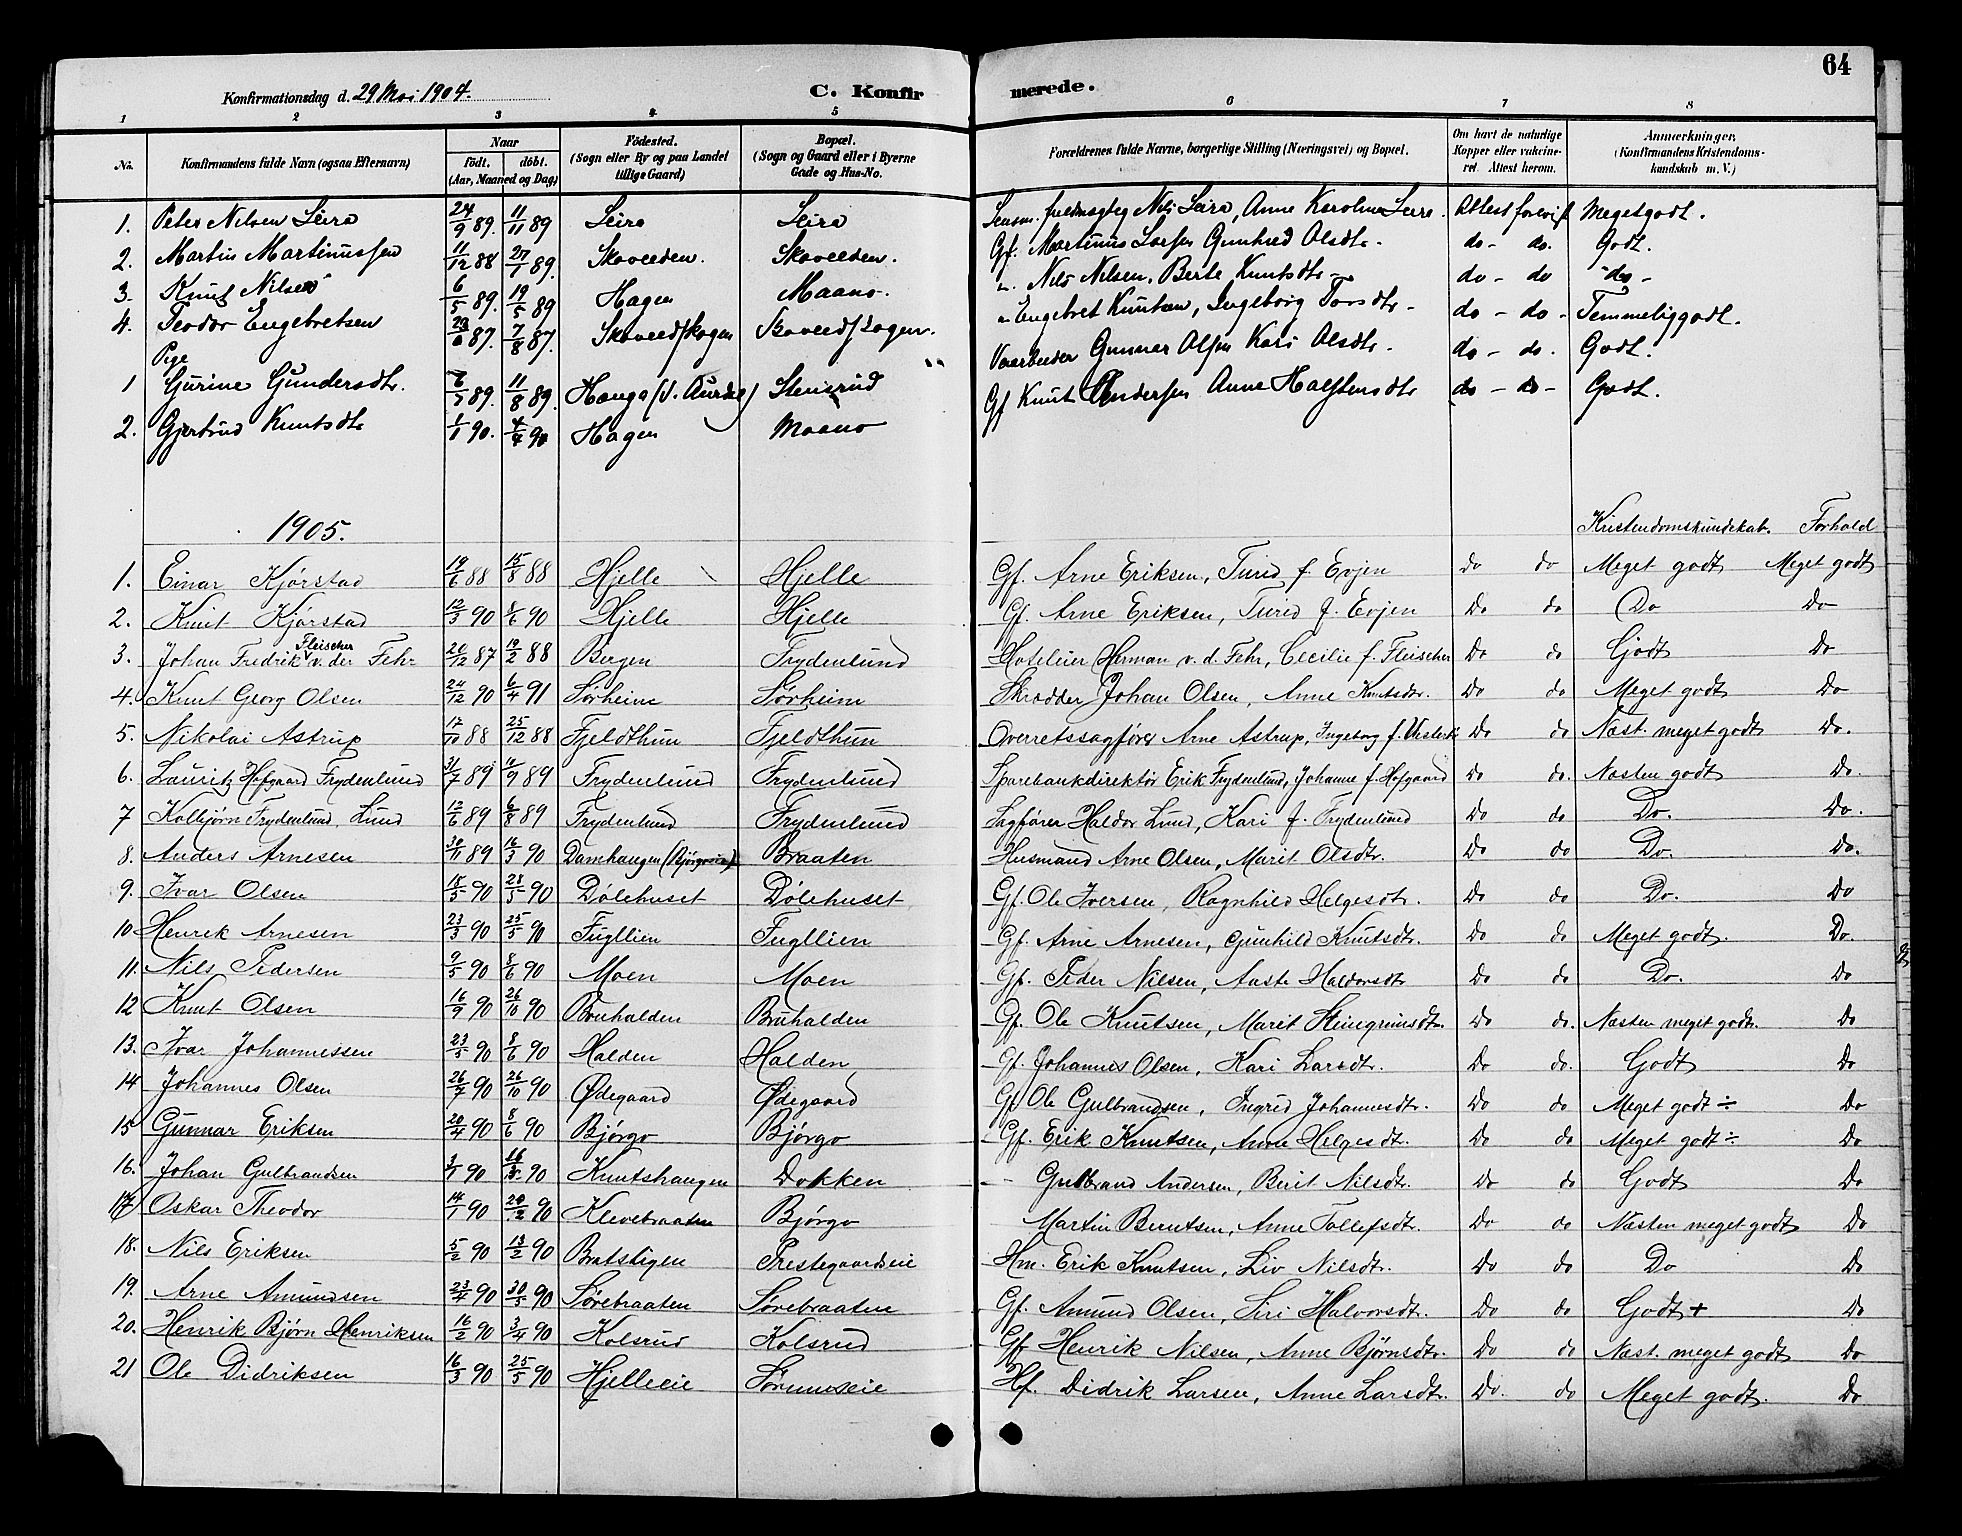 64
Konfirmationsdag d. 29 Mai 1904. C. Konfirmerede.
1 2 3 4 5 6 7 8
No. Konfirmandens fulde Navn (ogsaa Efternavn) Naar født. døbt. (Aar, Maaned og Dag) Fødested. (Sogn eller By og paa Landet tillige Gaard) Bopæl. (Sogn og Gaard eller i Byerne Gade og Hus-No. Forældrenes fulde Navne, borgerlige Stilling (Næringsvei) og Bopæl. Om havt de naturlige Kopper eller vakcineret. Attest herom. Anmærkninger, (Konfirmandens Kristendomskundskab m. V.)
1. Peter Nilsen Leira 24/9 89. 11/11 89 Leira Leira Nils Leira, Anne Karoline Leira. Attest forevist Meget godt.
2. Martin Martinussen 11/12 88 27/1 89. Skaveeden. Skaveeden. Gf. Martinus Larsen Gunhild Olsdtr. do - do. Godt.
3. Knut Nilsen 6/5 89. 19/5 89 Hagen Maano. " Nils Nilsen, Berte Knutsdtr - do - do "do -
4. Teodor Engebretsen 23/6 87. 7/8 87. Skoveed/skogen Skoveed/skogen. " Engebret Knutsen, Ingeborg Torsdtr - do - do - Temmelig godt.
Pige
1 Gurine Gundersdtr. 7/5 89. 11/8 89. Hauga (S. Aurdal) Stensrud Gunnar Olsen Kari Olsdtr. do - do. Godt.
2. Gjertrud Knutsdtr 1/1 90. 4/4 90 Hagen Maano Gf Knut Andersen Anne Halstensdtr do - do - Godt.
1905. Kristendomskundskab. Forhold
1. Einar Kjørstad 19/6 88 15/8 88 Hjelle Hjelle Gf. Arne Eriksen, Turid f. Evjen do do Meget godt Meget godt
2. Knut Kjørstad 12/3 90 8/6 90 Hjelle Hjelle Gf. Arne Eriksen, Turid f. Evjen Do do Do Do
3. Johan Fredrik Fleischer v. der Fehr 20/12 87 19/2 88 Bergen Frydenlund Hoteleier Herman v. d. Fehr, Cecilie f. Fleischer Do do Godt Do
4. Knut Georg Olsen 24/12 90 6/4 91 Sørheim Sørheim Skrædder Johan Olsen, Anne Knutsdtr. Do do Meget godt Do
5. Nikolai Astrup 17/10 88 25/12 88 Fjeldthun Fjeldthun Overretssagfører Arne Astrup, Ingeborg f. Do do Næst. meget godt Do.
6. Lauritz Hofgaard Frydenlund 31/7 89 4/9 89 Frydenlund Frydenlund Sparebankdirektør Erik Frydenlund, Johanne f. Hofgaard Do do. Næsten godt Do.
7 Kolbjørn Frydenlund Lund 12/6 89 6/8 89 Frydenlund Frydenlund Sagfører Haldor Lund, Kari f. Frydenlund Do do Do. Do.
8. Anders Arnesen 30/11 89 16/3 90 Damhaugen Braaten Husmand Arne Olsen, Marit Olsdtr. Do do Do. Do.
9. Ivar Olsen 15/5 90 28/5 90 Dølehuset Dølehuset Gf. Ole Iversen, Ragnhild Helgesdtr. Do do Do. Do
10 Henrik Arnesen 23/3 90 25/5 90 Fugllien Fugllien Gf. Arne Arnesen, Gunhild Knutsdtr. Do do Meget godt. Do.
11. Nils Pedersen 9/5 90 8/6 90 Moen Moen Gf. Peder Nilsen, Aaste Haldorsdtr Do do Do. Do
12 Knut Olsen 16/9 90 26/10 90 Bruhalden Bruhalden Gf. Ole Knutsen, Marit Steingrimsdtr. Do do. Næsten meget godt. Do
13. Ivar Johannessen 23/5 90 8/6 90 Halden Halden Gf. Johannes Olsen, Kari Larsdtr. Do do. Godt Do
14 Johannes Olsen 26/7 90 26/10 90 Ødegaard Ødegaard Gf Ole Gulbrandsen, Ingrid Johannesdtr. Do do Meget godt ÷ Do
15 Gunnar Eriksen 20/4 90 8/6 90 Bjørgo Bjørgo Gf. Erik Knutsen, Anne Helgesdtr. Do do Meget godt ÷ Do
16. Johan Gulbrandsen 3/1 90 16/3 90 Knutshaugen Dokken - Gulbrand Andersen, Berit Nilsdtr. Do do Godt Do
17 Oskar Theodor 14/1 90 20/2 90 Klevebraaten Bjørgo Martin Berntsen, Anne Tollefsdtr. Do do Næsten meget godt Do
18. Nils Eriksen 5/2 90 13/2 90 Bratstigen Prestegaardseie Hm. Erik Knutsen, Liv Nilsdtr. Do do Do Do
19. Arne Amundsen 23/4 90 30/5 90 Sørebraaten Sørebraaten Gf. Amund Olsen, Siri Halvorsdtr. Do do Godt + Do
20. Henrik Bjørn Henriksen 16/2 90 3/4 90 Kolsrud Kolsrud Gf Henrik Nilsen, Anne Bjørnsdtr. Do do Næst. meget godt Do
21 Ole Didriksen 16/3 90 25/5 90 Hjelleeie Hf. Didrik Larsen, Anne Larsdtr. Do. do Meget godt. Do